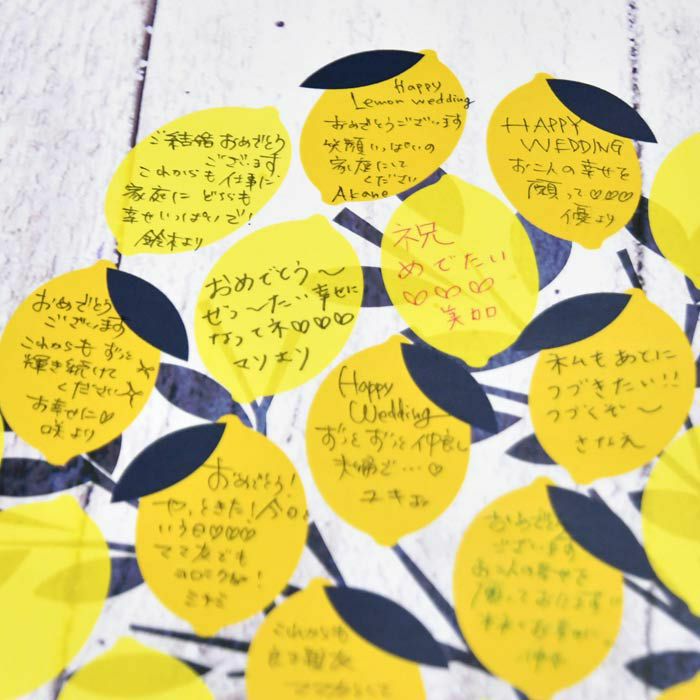 ご結婚おめでとう
ございます
これからも仕事に
家庭に どちらも
幸せいっぱいで!
鈴木より
Happy
Lemon wedding
おめでとうございます
笑顔いっぱいの
家庭にして
ください
Akane
HAPPY
WEDDING
お二人の幸せを
願って♡♡♡
優より
おめでとう〜
ぜっ〜たい幸せに
なってネ♡♡♡
マリエり
祝
めでたい
♡♡♡
美加
おめでとう
ございます
これからも ずっと
輝き続けて
ください
お幸せに♡
咲より
Happy
Wedding
ずっとずっと仲良し
夫婦で…♡
ユキより
私もあとに
つづきたい!!
つづくぞ〜
さなえ
おめでとう!
やっときた!今日と
いう日♡♡♡
ミナミ
おめでとう
ございます
お二人の幸せを
願っております
これからも